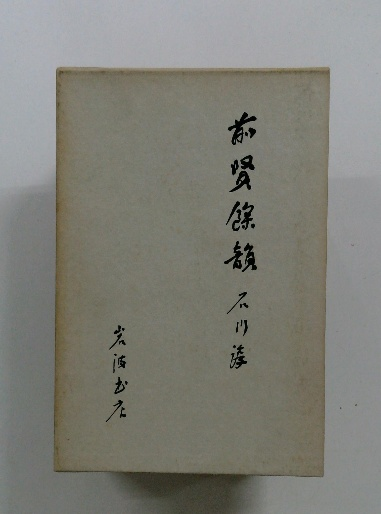 前賢餘韻
石川淳
岩波書店